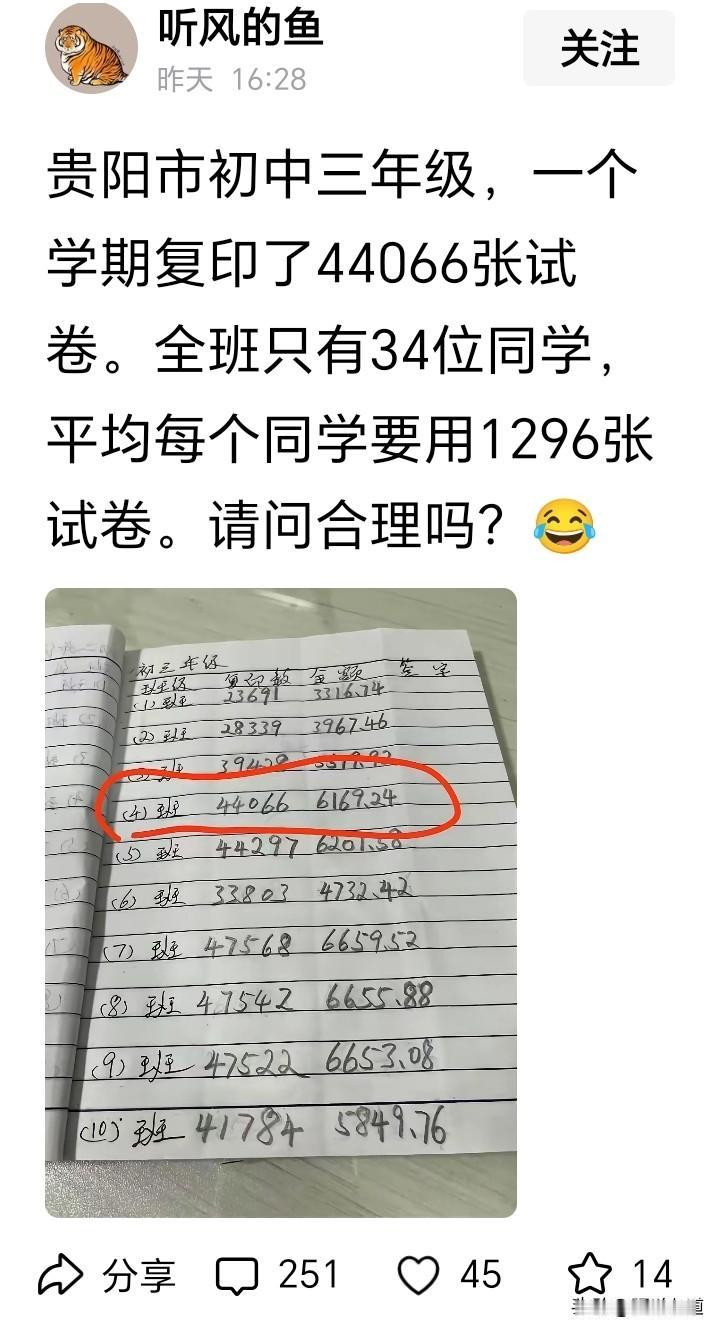 听风的鱼
昨天 16:28
关注
贵阳市初中三年级，一个
学期复印了44066张试
卷。全班只有34位同学，
平均每个同学要用1296张
试卷。请问合理吗？😂
初三年级
班级 复印数 金额 签字
(1)班 23691 3316.74
(2)班 28339 3967.46
(3)班 39428
(4)班 44066 6169.24
(5)班 44297 6201.58
(6)班 33803 4732.42
(7)班 47568 6659.52
(8)班 47542 6655.88
(9)班 47522 6653.08
(10)班 41784 5849.76
分享 251 45 14